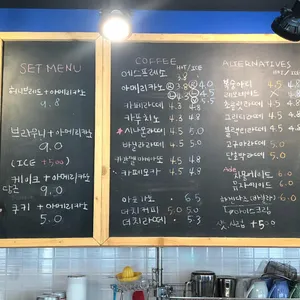 SET MENU
허니브레드 + 아메리카노
9.8
브라우니 + 아메리카노
9.0
(ICE +500)
케이크 + 아메리카노
9.0
쿠키 + 아메리카노
5.0
COFFEE HOT/ICE
에스프레소 3.8
아메리카노 3.8 4.0
4.3 4.5
카페라떼 4.3 4.8
카푸치노 4.3 4.8
시나몬라떼 4.5 5.0
바닐라라떼 4.5 4.8
카라멜마끼아또 4.5 4.8
카페모카 4.5 4.8
아포가토 6.5
더치커피 5.0 5.0
더치라떼 5.3
ALTERNATIVES HOT/ICE
복숭아티 4.5 4.8
레몬에이드 X
초콜릿라떼 4.5 4.8
그린티라떼 4.5 4.8
블랙티라떼 4.5 4.8
고구마라떼 5.0
단호박라떼 5.0
Ade
자몽에이드 6.0
유자에이드 6.0
6.0
아이스크림
샷 시럽 +500